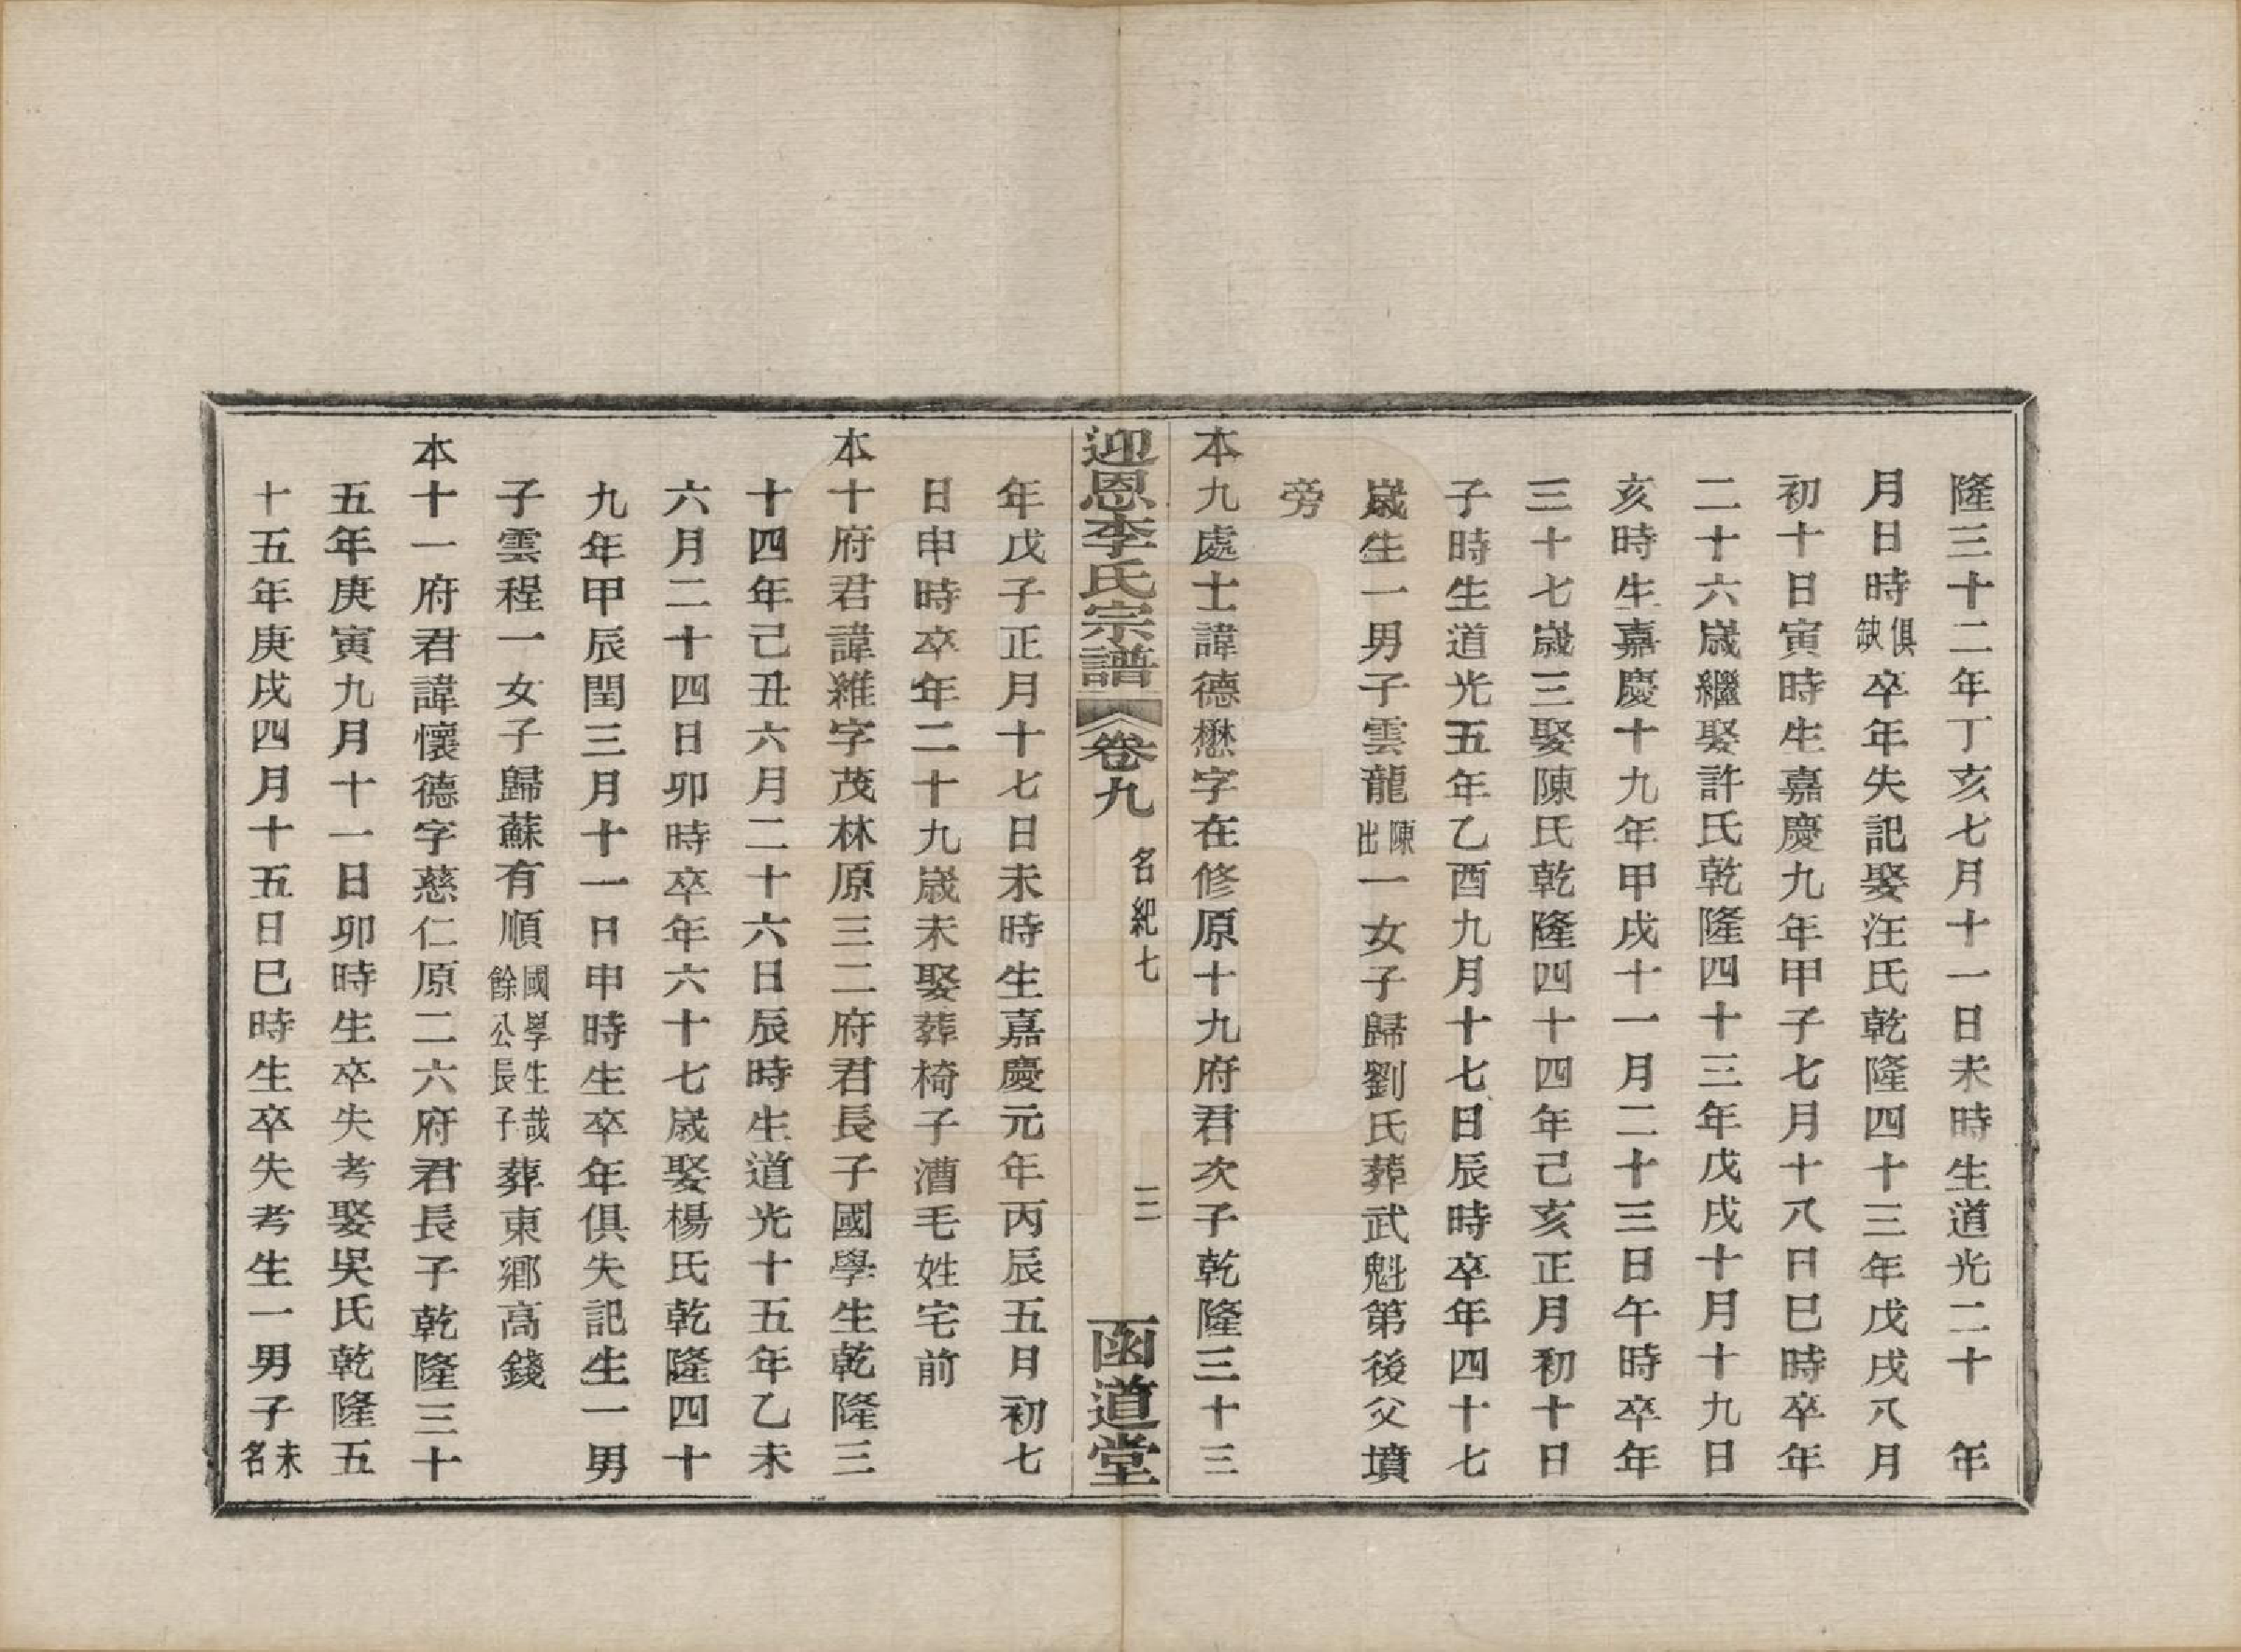 隆三十二年丁亥七月十一日未時生道光二十　年
月日時俱缺卒年失記娶汪氏乾隆四十三年戊戌八月
初十日寅時生嘉慶九年甲子七月十八日巳時卒年
二十六歲繼娶許氏乾隆四十三年戊戌十月十九日
亥時生嘉慶十九年甲戌十一月二十三日午時卒年
三十七歲三娶陳氏乾隆四十四年己亥正月初十日
子時生道光五年乙酉九月十七日辰時卒年四十七
歲生一男子雲龍陳出一女子歸劉氏葬武魁第後父墳
旁
本九處士諱德懋字在修原十九府君次子乾隆三十三
迎恩李氏宗譜　卷九　名紀七　三　函道堂
年戊子正月十七日未時生嘉慶元年丙辰五月初七
日申時卒年二十九歲未娶葬椅子漕毛姓宅前
本十府君諱維字茂林原三二府君長子國學生乾隆三
十四年己丑六月二十六日辰時生道光十五年乙未
六月二十四日卯時卒年六十七歲娶楊氏乾隆四十
九年甲辰閏三月十一日申時生卒年俱失記生一男
子雲程一女子歸蘇有順國學生哉餘公長子葬東鄉高錢
本十一府君諱懷德字慈仁原二六府君長子乾隆三十
五年庚寅九月十一日卯時生卒失考娶吳氏乾隆五
十五年庚戌四月十五日巳時生卒失考生一男子未名